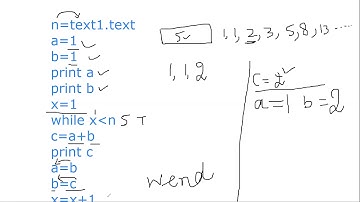 n=text1.text
a=1
b=1
print a
print b
x=1
while x<n 5 T
c=a+b
print c
a=b
b=c
x=x+1
wend
5
1, 1, 2, 3, 5, 8, 13 ....
1, 1, 2
c=2
a=1 b=2